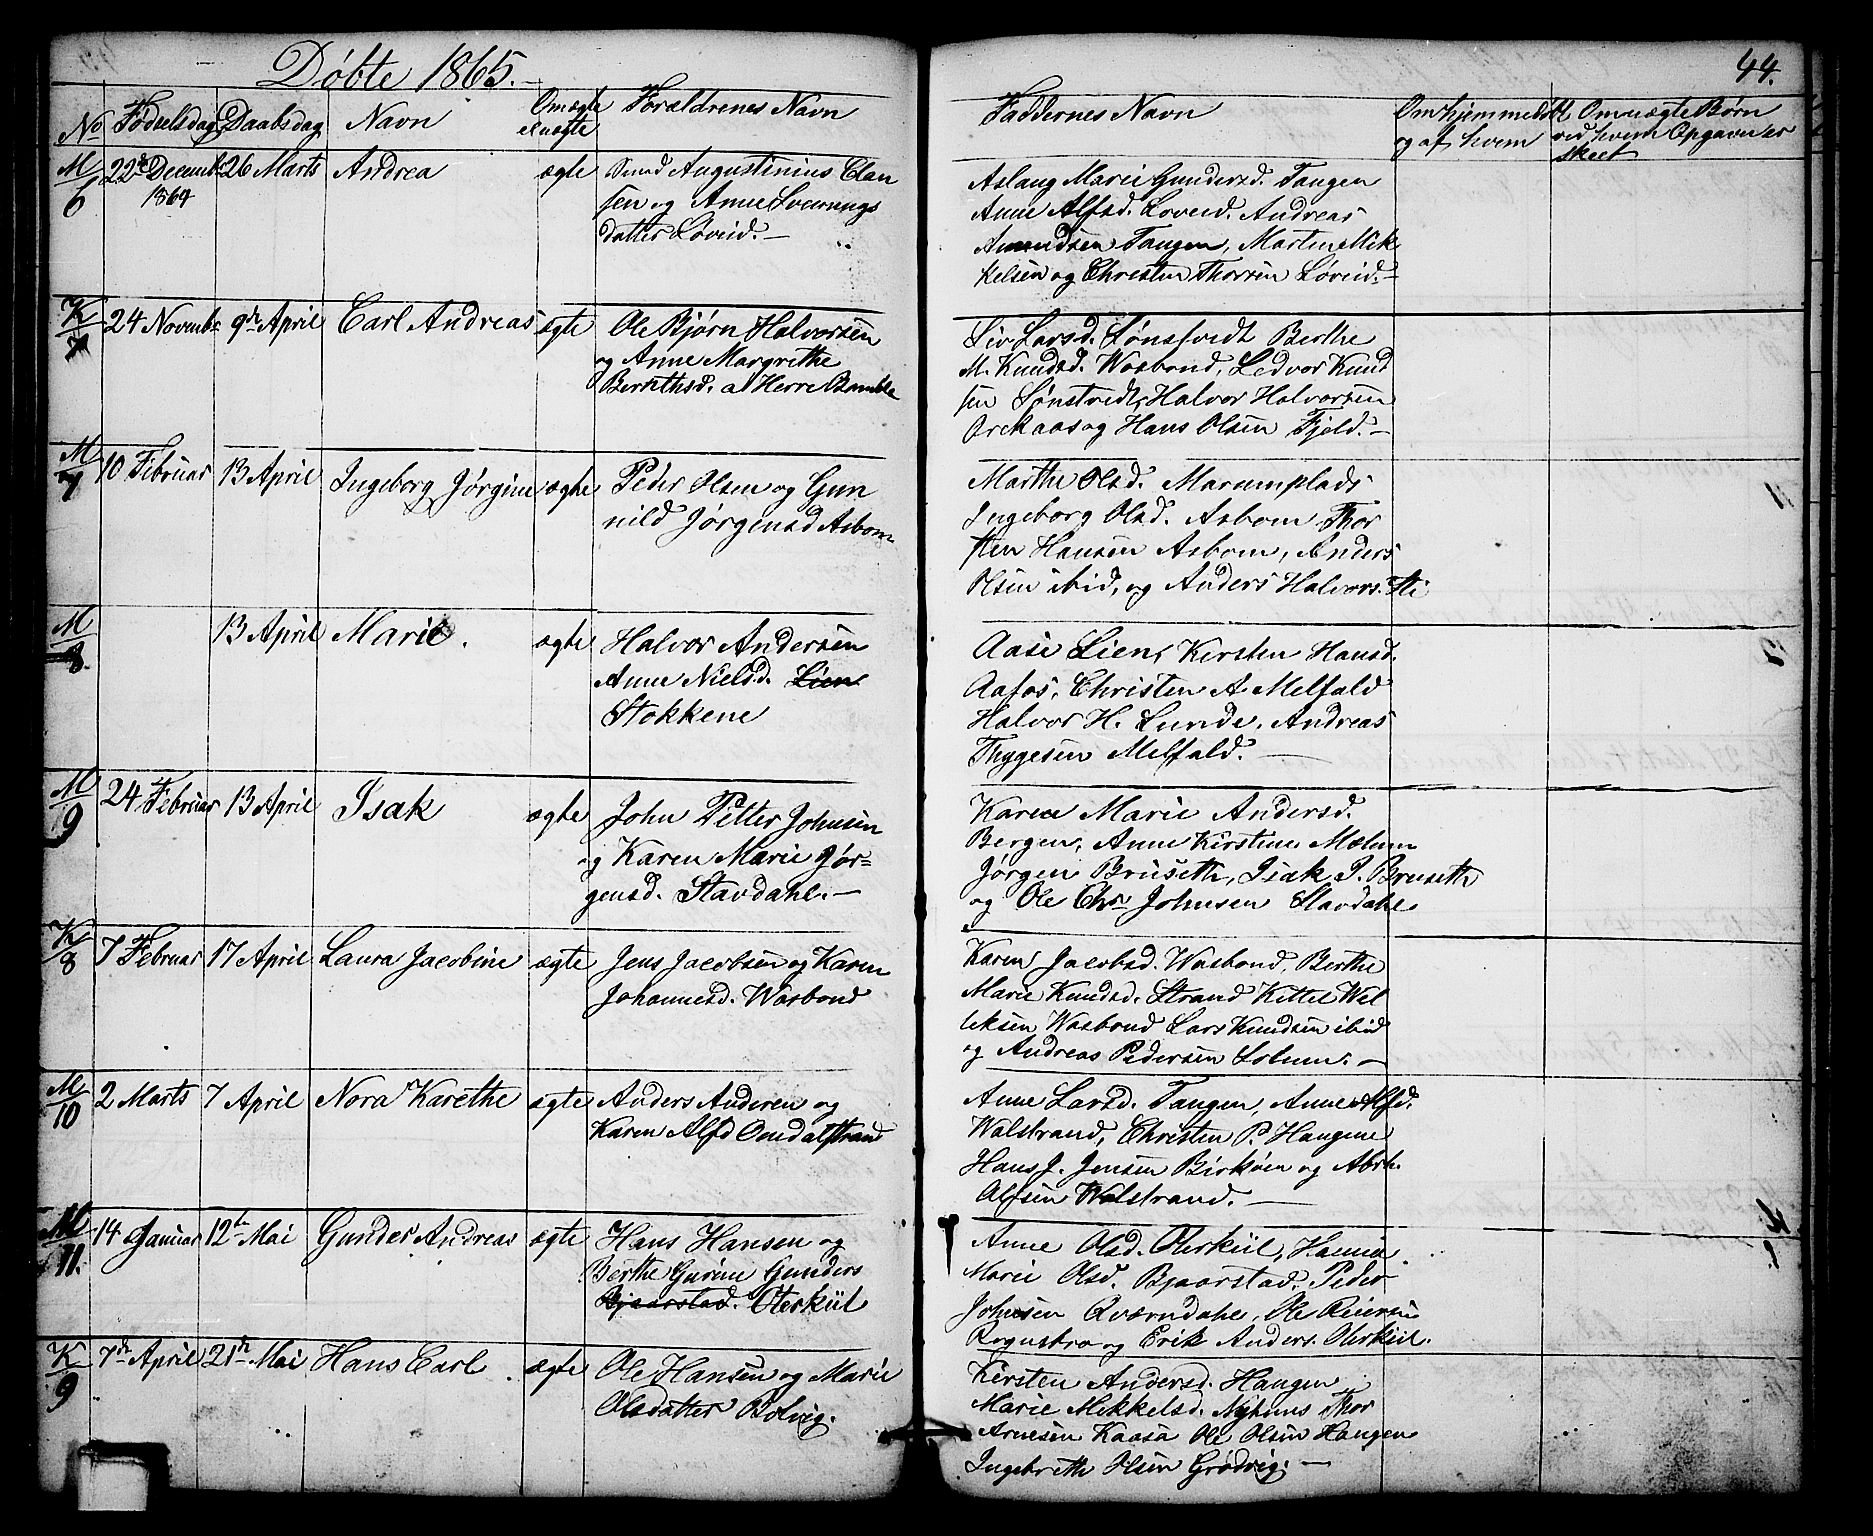 Døbte 1865.
44.
No Fødselsdag Daabsdag Navn Om ægte el uægte Forældrenes Navn
Faddernes Navn Om hjemmedøbt og af hvem Om uægte Børn ved hvem Opgaven er skeet
M/6 22de Decemb. 1864 26 Marts Andrea ægte Augustinius Clau
sen og Anne Sveinungs
datter Løveid.
Aslaug Marie Gundersd. Tangen
Anne Alfsd. Loveid. Andreas
Amundsen Tangen, Martin Mik
kelsen og Christen Thorsen Løveid.
K/7 24 Novemb. 9de April Carl Andreas ægte Ole Bjørn Halvorsen
og Anne Margrethe
Bernthsd. a Herre Bamble
Siv Larsd. Sønstvedt Berthe
M. Knudsd. Wosbond, Ledvor Knud
sen Sønstvedt, Halvor Halvorsen
Orekaas og Hans Olsen Fjeld.
M/7 10 Februar 13 April Ingeborg Jørgine ægte Peder Olsen og Gun
nild Jørgensd Asbom
Marthe Olsd. Marumplads
Ingeborg Olsd. Asbom Thor
sten Hansen Asbom, Anders
Olsen ibid, og Anders Halvors. Sti
M/8 13 April Marie. ægte Halvor Andersen
Anne Nielsd. Lien
Stokkene
Aase Lien, Kirsten Hansd.
Aafos, Christen A. Melfald
Halvor H. Lunde, Andreas
Thygesen Melfald.
M/9 24 Februar 13 April Isak ægte John Petter Johnsen
og Karen Marie Jør=
gensd. Stavdahl.
Karen Marie Andersd.
Bergen, Anne Kirstine Mælum
Jørgen Bruseth, Isak P. Bruseth
og Ole Chr Johnsen Stavdahl
K/8 7 Februar 17 April Laura Jacobine ægte Jens Jacobsen og Karen
Johannesd. Wosbond
Karen Jacobsd. Wosbond, Berthe
Marie Knudsd. Strand Kittel Wel
leksen Wosbond Lars Knudsen ibid
og Andreas Pedersen Solum.
M/10 2 Marts 7 April Nora Karethe ægte Anders Anderen og
Karen Alfd Omdalstrand
Anne Larsd. Tangen, Anne Alfd.
Walstrand, Christen P. Haugene
Hans J. Jensen Birkøen og Abrh.
Alfsen Walstrand.
M/11. 14 Januar 12te Mai Gunder Andreas ægte Hans Hansen og
Berthe Gurine Gunders
Bjaarstad. Oterkiil
Anne Olsd. Oterkiil, Hanna
Marie Olsd. Bjaarstad. Peder
Johnsen Qværndahl, Ole Reiersen
Rognsbro og Erik Anders. Oterkiil.
K/9 7de April 21de Mai Hans Carl ægte Ole Hansen og Marie
Olsdatter Bolvig.
Kirsten Andersd. Haugen
Marie Mikkelsd. Nyhuus Thor
Arnesen Kaasa Ole Olsen Haugen
Ingebreth Olsen Grødvig.